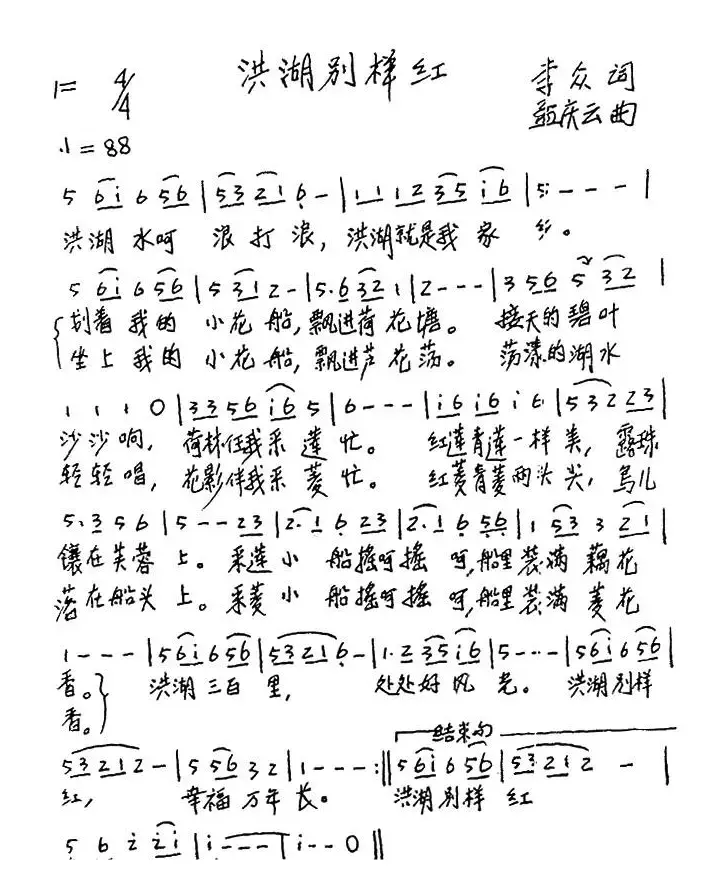 洪湖别样红
1= 4/4
李众 词
庆云 曲
♩=88
5 6i 6 56 | 53 21 6 - | 1 1 12 35 i6 | 5 - - - |
洪湖 水呵 浪打浪，洪湖就是我 家 乡。
5 6i 6 56 | 5 31 2 - | 5.6 32 1 | 2 - - - | 3 56 5 32 |
划着 我的 小花 船，飘进荷 花塘。 接天的碧叶
坐上 我的 小花 船，飘进芦 花荡。 荡漾的湖水
1 1 1 0 | 33 56 i6 5 | 6 - - - | i6 i6 i 6 | 53 2 23 |
沙沙响， 荷林任我采 莲 忙。 红莲青莲一样 美，露珠
轻轻唱， 花影伴我采 菱 忙。 红菱青菱两头 尖，鸟儿
5.3 5 6 | 5 - - 23 | 2.1 6 23 | 2.1 6 56 | 1 53 3 21 |
镶在芙蓉 上。采莲小 船摇呵摇 呵，船里装满 藕花
落在船头 上。采菱小 船摇呵摇 呵，船里装满 菱花
1 - - - | 5 6i 6 56 | 53 21 6 - | 1.2 35 i6 | 5 - - - | 5 6i 6 56 |
香。 洪湖三百 里， 处处好 风 光。 洪湖别样
香。
结束句
53 21 2 - | 5 56 3 2 | 1 - - - :‖ 5 6i 6 56 | 53 21 2 - |
红， 幸福 万年 长。 洪湖别样 红
5 6 2 2i | i - - - | i - - 0 ‖